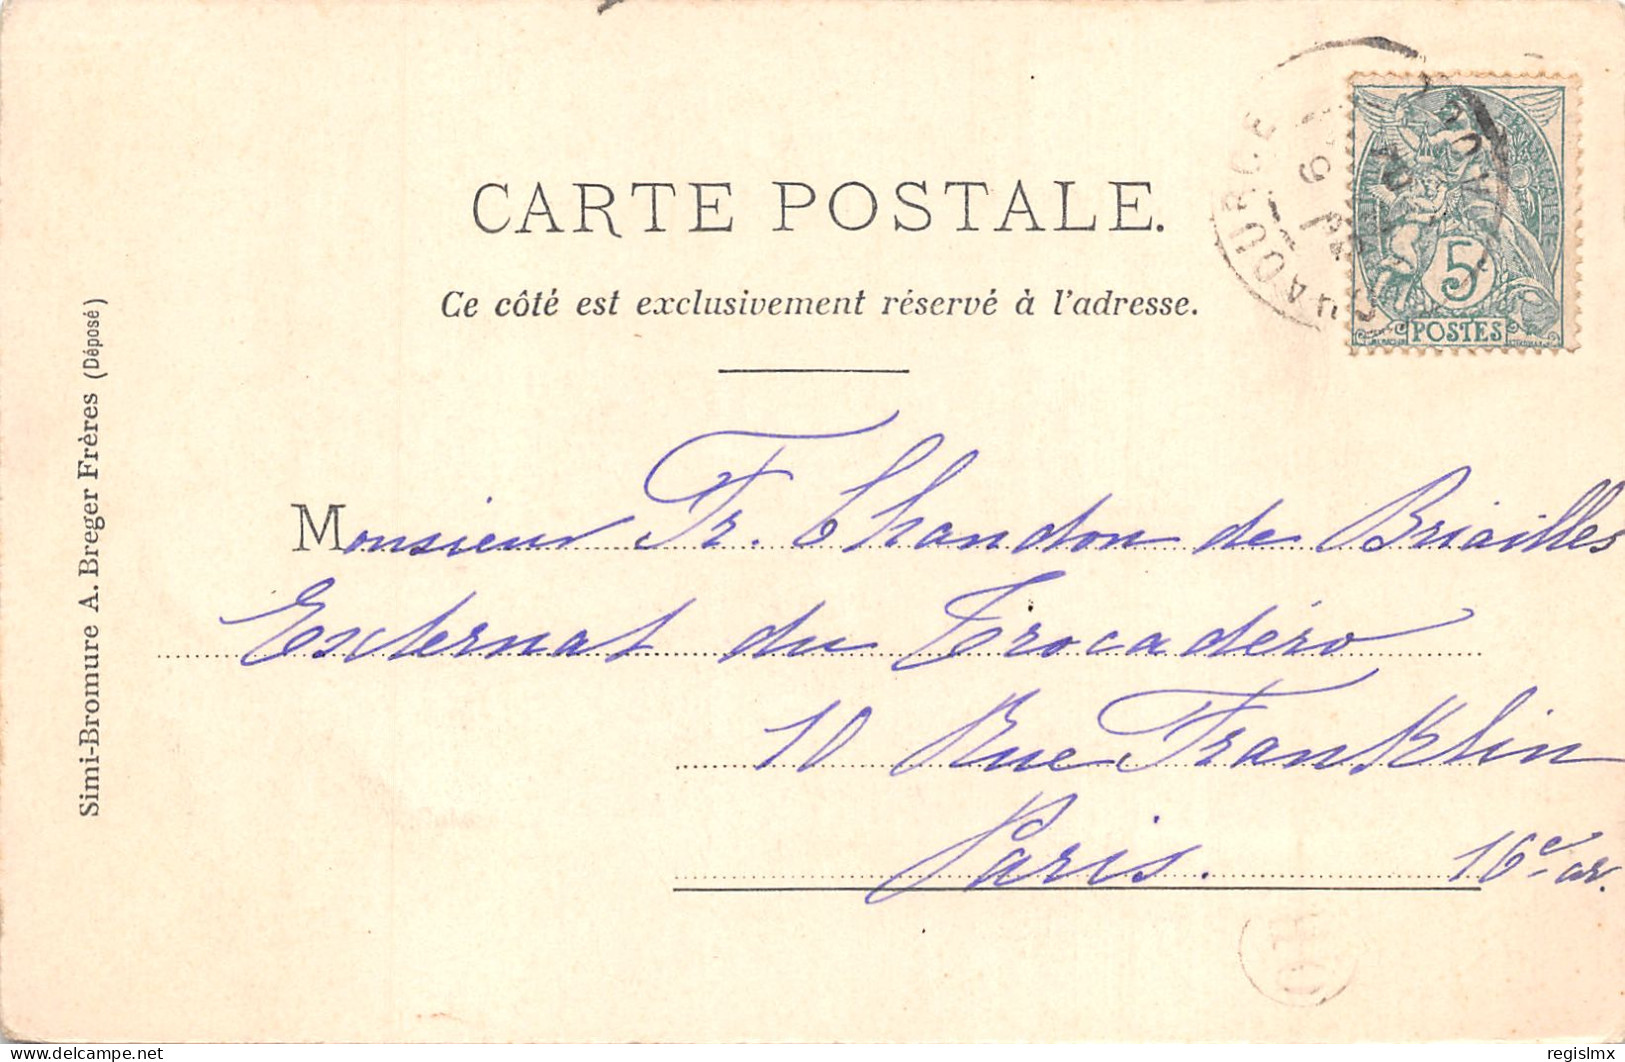 CARTE POSTALE.
Ce côté est exclusivement réservé à l'adresse.
5
POSTES
Simi-Bromure A. Breger Frères (Déposé)
Monsieur Fr. Chandon de Briailles
Externat du Trocadéro
10 Rue Franklin
Paris. 16e ar.
delcampe.net
regislmx